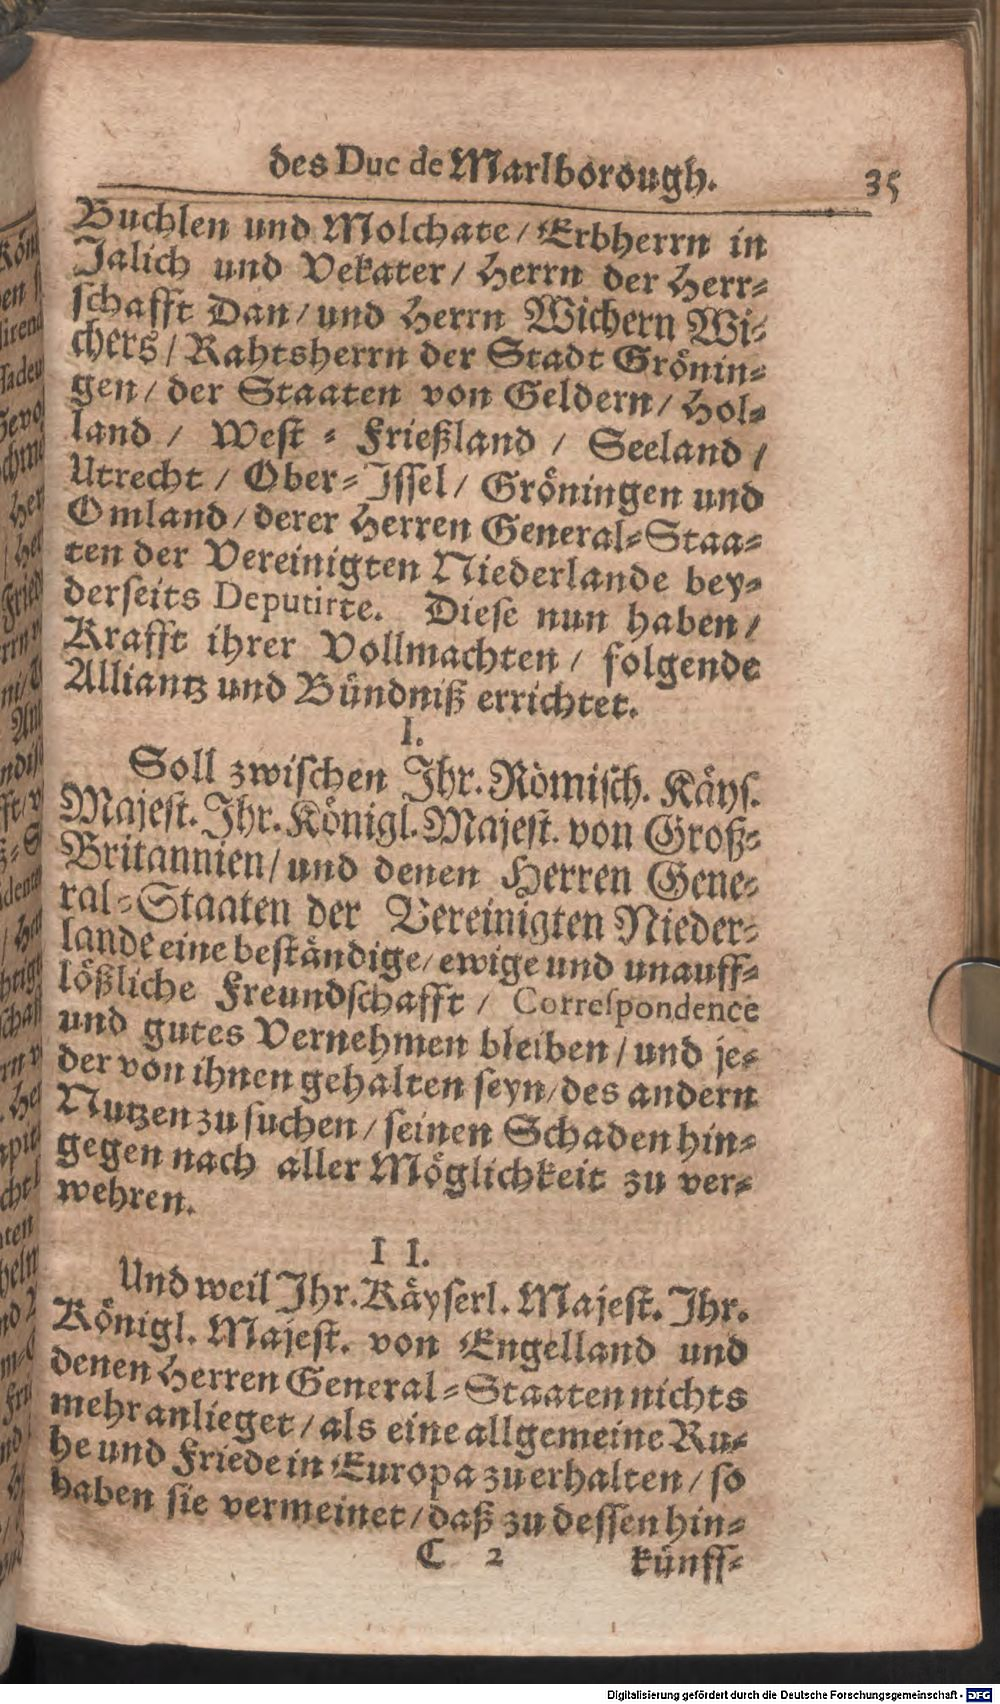 des Duc de Marlborough. 35
Buchlen und Molchate / Erbherrn in
Jalich und Vekater / Herrn der Herr-
schafft Dan / und Herrn Wichern Wi-
chers / Rahtsherrn der Stadt Grönin-
gen / der Staaten von Geldern / Hol-
land / West-Frießland / Seeland /
Utrecht / Ober-Issel / Gröningen und
Omland / derer Herren General-Staa-
ten der Vereinigten Niederlande bey-
derseits Deputirte. Diese nun haben /
Krafft ihrer Vollmachten / folgende
Alliantz und Bündniß errichtet.
I.
Soll zwischen Ihr. Römisch. Käys.
Majest. Ihr. Königl. Majest. von Groß-
Britannien / und denen Herren Gene-
ral-Staaten der Vereinigten Nieder-
lande eine beständige / ewige und unauff-
lößliche Freundschafft / Correspondence
und gutes Vernehmen bleiben / und je-
der von ihnen gehalten seyn / des andern
Nutzen zu suchen / seinen Schaden hin-
gegen nach aller Möglichkeit zu ver-
wehren.
II.
Und weil Ihr. Käyserl. Majest. Ihr.
Königl. Majest. von Engelland und
denen Herren General-Staaten nichts
mehr anlieget / als eine allgemeine Ru-
he und Friede in Europa zu erhalten / so
haben sie vermeinet / daß zu dessen hin-
C 2 künff-
Digitalisierung gefördert durch die Deutsche Forschungsgemeinschaft - DFG